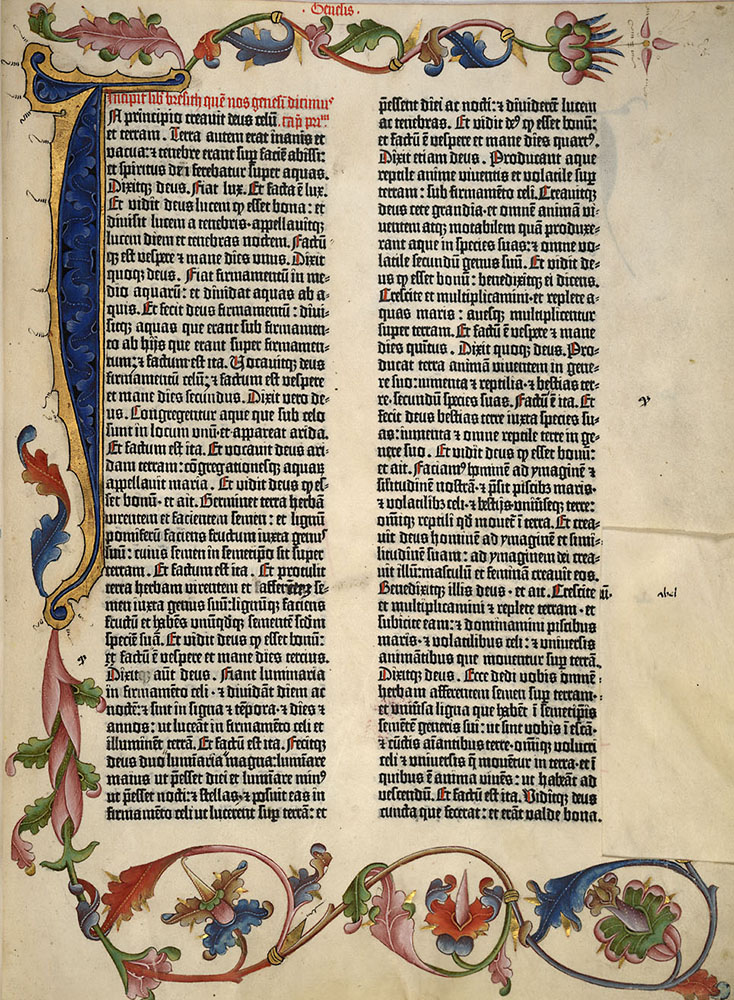 Genesis
Incipit liber bresith quē nos genesim dicimus
In principio creavit deus celū cap. prim
et terram. Terra autem erat inanis et
vacua: ⁊ tenebre erant sup faciē abissi:
et spiritus dei ferebatur super aquas.
Dixitq; deus. Fiat lux. Et facta ē lux.
Et vidit deus lucem q esset bona: et
divisit lucem a tenebris·appellavitq;
lucem diem et tenebras noctem. Factū
q; est vespere et mane dies unus. Dixit
quoq; deus. Fiat firmamentū in me-
dio aquarū: et dividat aquas ab a-
quis. Et fecit deus firmamentū: divi-
sitq; aquas que erant sub firmamen-
to ab hijs que erant super firmamen-
tum: ⁊ factum est ita. Vocavitq; deus
firmamentū celū: ⁊ factum est vespere
et mane dies secundus. Dixit vero de-
us. Congregentur aque que sub celo
sunt in locum unū et appareat arida.
Et factum est ita. Et vocavit deus ari-
dam terram: cōgregationesq; aquarꝝ
appellavit maria. Et vidit deus q es-
set bonū·et ait. Germinet terra herbā
virentem et facientem semen: et lignū
pomiferū faciens fructum iuxta genus
suū: cuius semen in semetipso sit super
terram. Et factum est ita. Et protulit
terra herbam virentem et afferentem se-
men iuxta genus suū: lignūq; faciens
fructū et habēs unūqdq; sementē scdm
speciē suā. Et vidit deus q esset bonū:
et factū ē vespere et mane dies tercius.
Dixitq; aūt deus. Fiant luminaria
in firmamēto celi·⁊ dividāt diem ac
noctē: ⁊ sint in signa ⁊ tēpora·⁊ dies ⁊
annos: ut luceāt in firmamēto celi et
illuminēt terrā. Et factū est ita. Fecitq;
deus duo luminaria magna: lumiare
maius ut pesset diei et lumiare minus
ut pesset nocti: ⁊ stellas·⁊ posuit eas in
firmamēto celi ut lucerent sup terrā: et
pessent diei ac nocti: ⁊ dividerēt lucem
ac tenebras. Et vidit deus q esset bonū:
et factū ē vespere et mane dies quartus.
Dixit etiam deus. Producant aque
reptile anime viventis et volatile sup
terram: sub firmamēto celi. Creavitq;
deus cete grandia·et omnē animā vi-
ventem atq; motabilem quā produxe-
rant aque in species suas: ⁊ omne vo-
latile secundū genus suū. Et vidit de-
us q esset bonū: benedixitq; ei dicens.
Crescite et multiplicamini·et replete a-
quas maris: avesq; multiplicentur
super terram. Et factū ē vespere ⁊ mane
dies quintus. Dixit quoq; deus. Pro-
ducat terra animā viventem in gene-
re suo: iumenta ⁊ reptilia·⁊ bestias ter-
re·secundū species suas. Factū ē ita. Et
fecit deus bestias terre iuxta species su-
as: iumenta ⁊ omne reptile terre in ge-
nere suo. Et vidit deus q esset bonū:
et ait. Faciam hominē ad ymaginē ⁊
similitudinē nostrā·⁊ presit piscib; maris·
⁊ volatilib; celi·⁊ bestijs univseq; terre:
omiq; reptili qd movet ī terra. Et crea-
vit deus hominē ad ymaginē et simi-
litudinē suam: ad ymaginem dei crea-
vit illū: masculū et feminā creavit eos.
Benedixitq; illis deus·et ait. Crescite
et multiplicamini ⁊ replete terram·et
subicite eam: ⁊ dominamini piscibus
maris·⁊ volatilibus celi: ⁊ universis
animātibus que moventur sup terrā.
Dixitq; deus. Ecce dedi vobis omnē
herbam afferentem semen sup terram·
et univsa ligna que habēt ī semetipsis
semētē generis sui: ut sint vobis ī escā·
⁊ cūctis aīantibus terre·omiq; volucri
celi ⁊ universis q movētur in terra·et ī
quibus ē anima vivēs: ut habeāt ad
vescendū. Et factū est ita. Viditq; deus
cuncta que fecerat: et erāt valde bona.